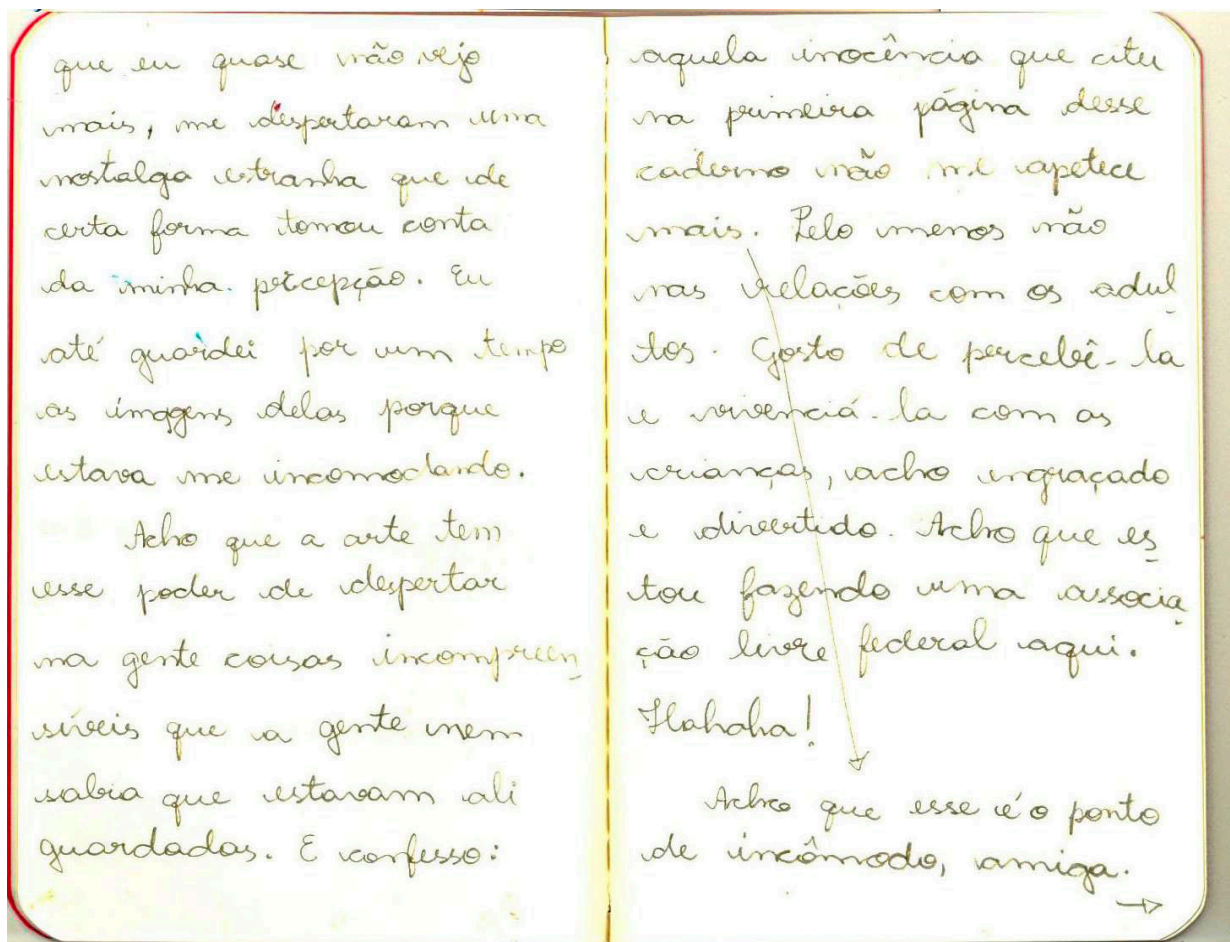 que eu quase não vejo
mais, me despertaram uma
nostalga estranha que de
certa forma tomou conta
da minha percepção. Eu
até guardei por um tempo
as imagens delas porque
estava me incomodando.
Acho que a arte tem
esse poder de despertar
na gente coisas incompreen_
síveis que a gente nem
sabia que estavam ali
guardadas. E confesso:
aquela inocência que citei
na primeira página desse
caderno não me apetece
mais. Pelo menos não
nas relações com os adul_
tos. Gosto de percebê-la
e vivenciá-la com as
crianças, acho engraçado
e divertido. Acho que es_
tou fazendo uma associa_
ção livre federal aqui.
Hahaha!
Acho que esse é o ponto
de incômodo, amiga.
→